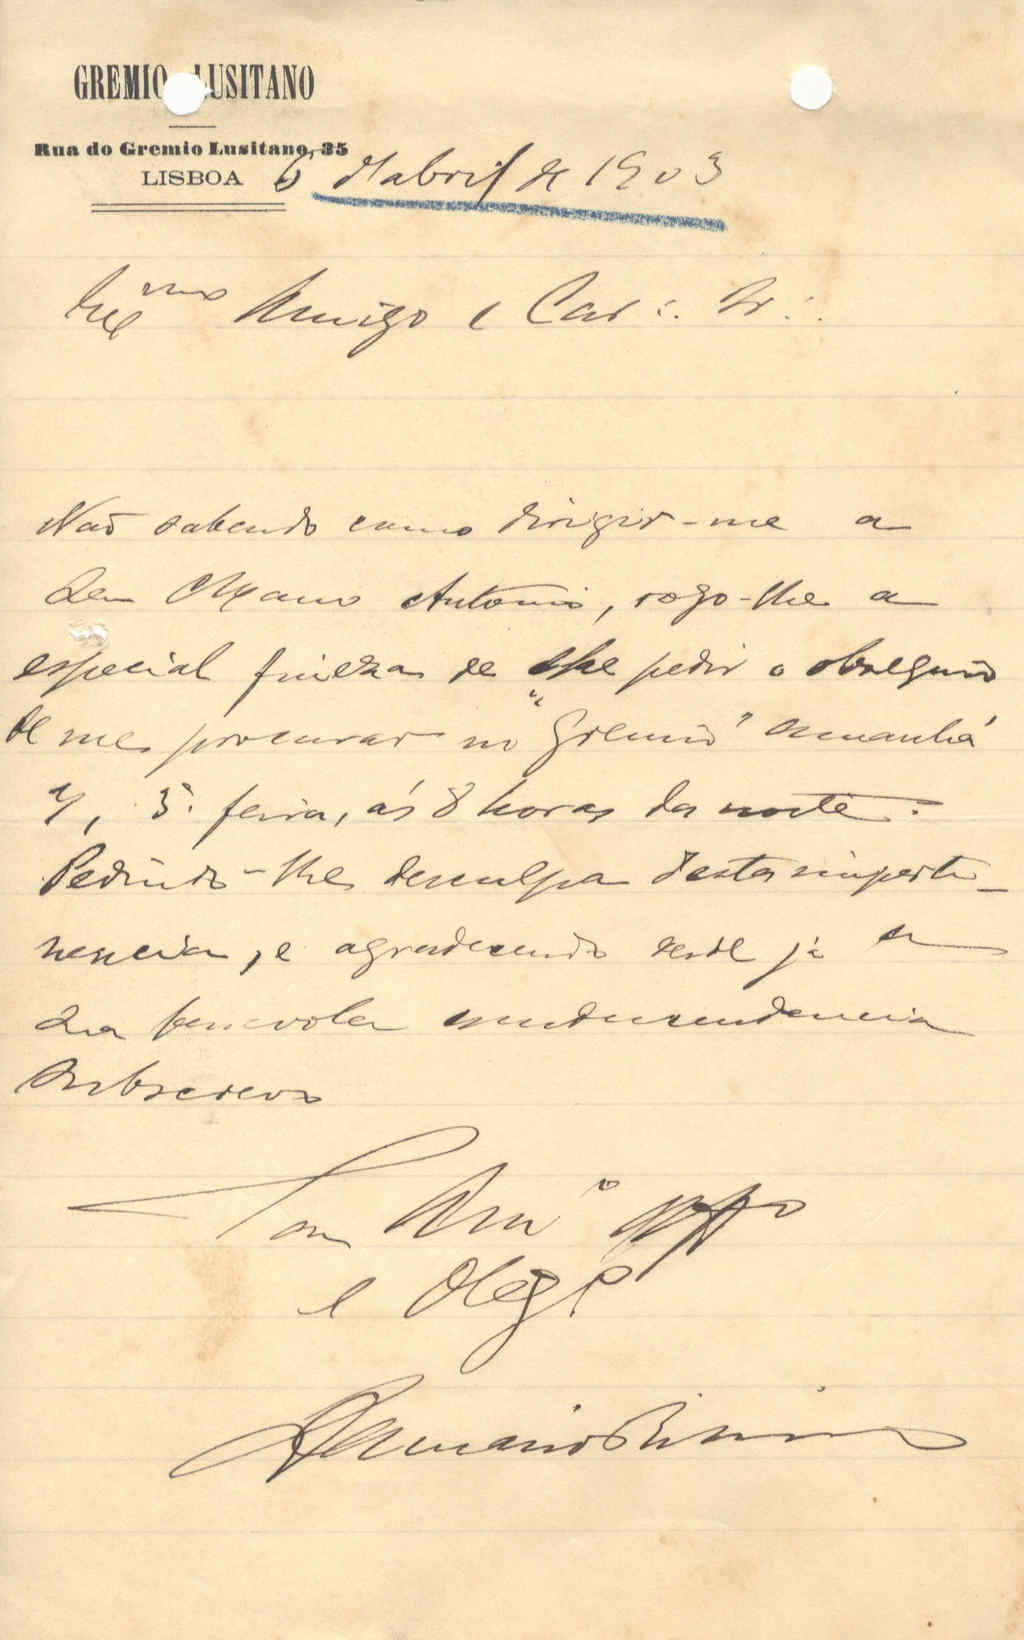 GREMIO LUSITANO
Rua do Gremio Lusitano, 35
LISBOA
6 d'abril de 1903
Amigo e Car∴ Ir∴
Não sabendo como dirigir-me a
seu Mano Antonio, rogo-lhe a
especial fineza de lhe pedir o obsequio
de me procurar no "Gremio" amanhã
7, 5ª feira, ás 8 horas da noite.
Pedindo-lhe desculpa desta imperti-
nencia, e agradecendo desde já a
sua benevola condescendencia
Subscrevo
e Obgº